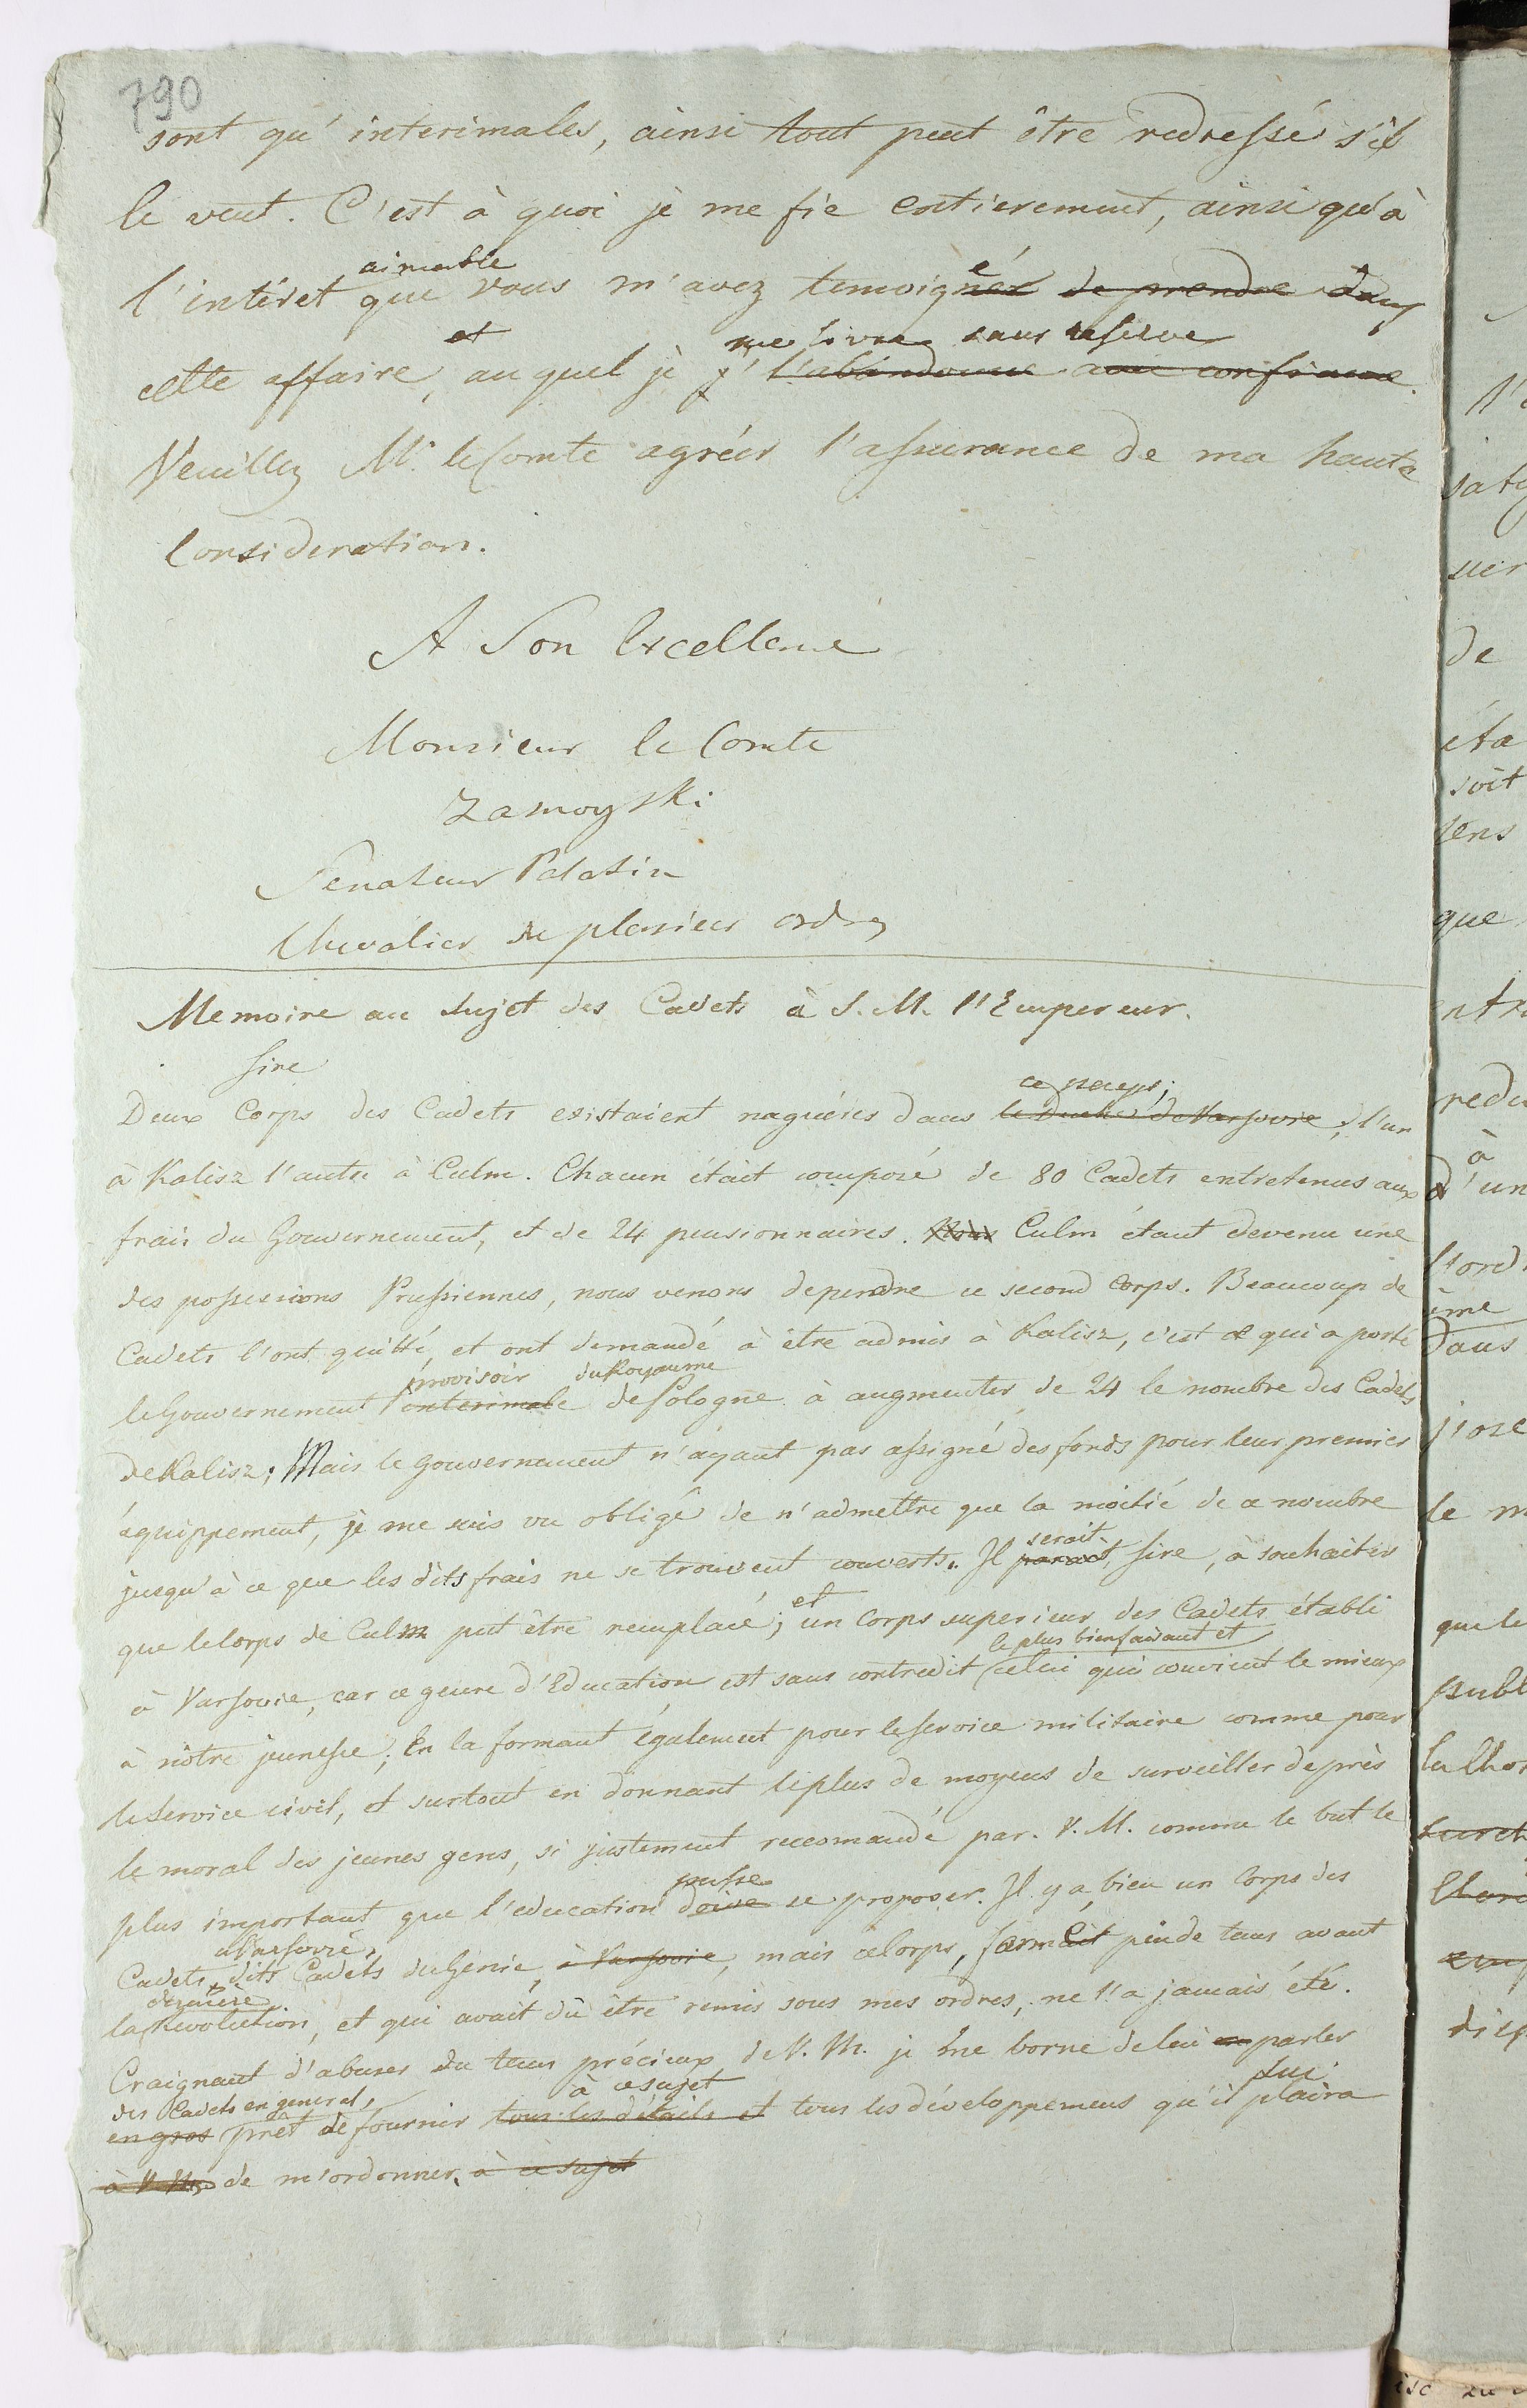 790
sont qu'interimales, ainsi tout peut être redressé s'il
le veut. C'est à quoi je me fie entierement, ainsi qu'à
aimable
l'intéret que vous m'avez temoigné de prendre dans
et me livre sans reserve
cette affaire, auquel je j' l'abandonne avec confiance.
Veuillez Mr. le Comte agréér l'assurance de ma haute
Consideration.
A Son Excellence
Monsieur le Comte
Zamoyski
Senateur Palatin
Chevalier de plusieur ordres
Memoire au sujet des Cadets à S. M. l'Empereur.
Sire
ce pays;
Deux Corps des Cadets existaient naguéres dans le Duché de Varsovie, l'un
à Kalisz l'autre à Culm. Chacun était composé de 80 Cadets entretenus aux
frais du Gouvernement, et de 24 pensionnaires. Nous Culm étant devenu une
des possessions Prussiennes, nous venons de perdre ce second Corps. Beaucoup de
Cadets l'ont quitté, et ont demandé à être admis à Kalisz, c'est ce qui a porté
provisoir du Royaume
le Gouvernement interimale de Pologne à augmenter de 24 le nombre des Cadets
de Kalisz; Mais le gouvernement n'ayant pas assigné des fonds pour leur premier
équippement, je me suis vu obligé de n'admettre que la moitié de ce nombre
serait
jusqu'à ce que les dits frais ne se trouvent couverts. Il parait, Sire, à souhaiter
et
que le Corps de Culm put être remplacé; un Corps superieur des Cadets établi
le plus bienfaisant et
à Varsovie, car ce genre d'Education est sans contredit celui qui convient le mieux
à nôtre jeunesse; En la formant également pour le service militaire comme pour
le service civil, et surtout en donnant le plus de moyens de surveiller de près
le moral des jeunes gens, si justement reccomandé par. V. M. comme le but le
puisse
plus important que l'education doive se proposer. Il y a bien un Corps des
à Varsovie,
Cadets dits Cadets du Génie, à Varsovie, mais ce Corps, formé peu de tems avant
derniere
la Revolution, et qui avait dû être remis sous mes ordres, ne l'a jamais été.
Craignant d'abuser du tems précieux de V. M. je me borne de lui en parler
des Cadets en general, à ce sujet lui
en gros prêt de fournir tous les détails et tous les développemens qu'il plaira
à V. M. de m'ordonner. à ce sujet